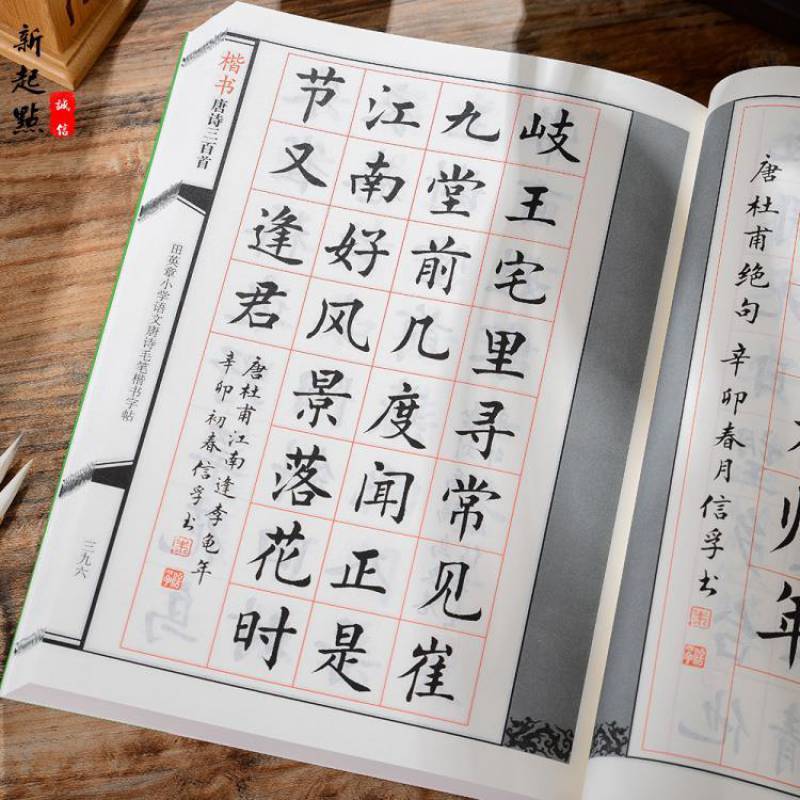 新起點
誠信
唐杜甫绝句 辛卯春月信孚书
岐王宅里寻常见崔
九堂前几度闻正是
江南好风景落花时
节又逢君
唐杜甫江南逢李龟年
辛卯初春信孚书
楷书 唐诗三百首
田英章小学语文唐诗毛笔楷书字帖
三九六